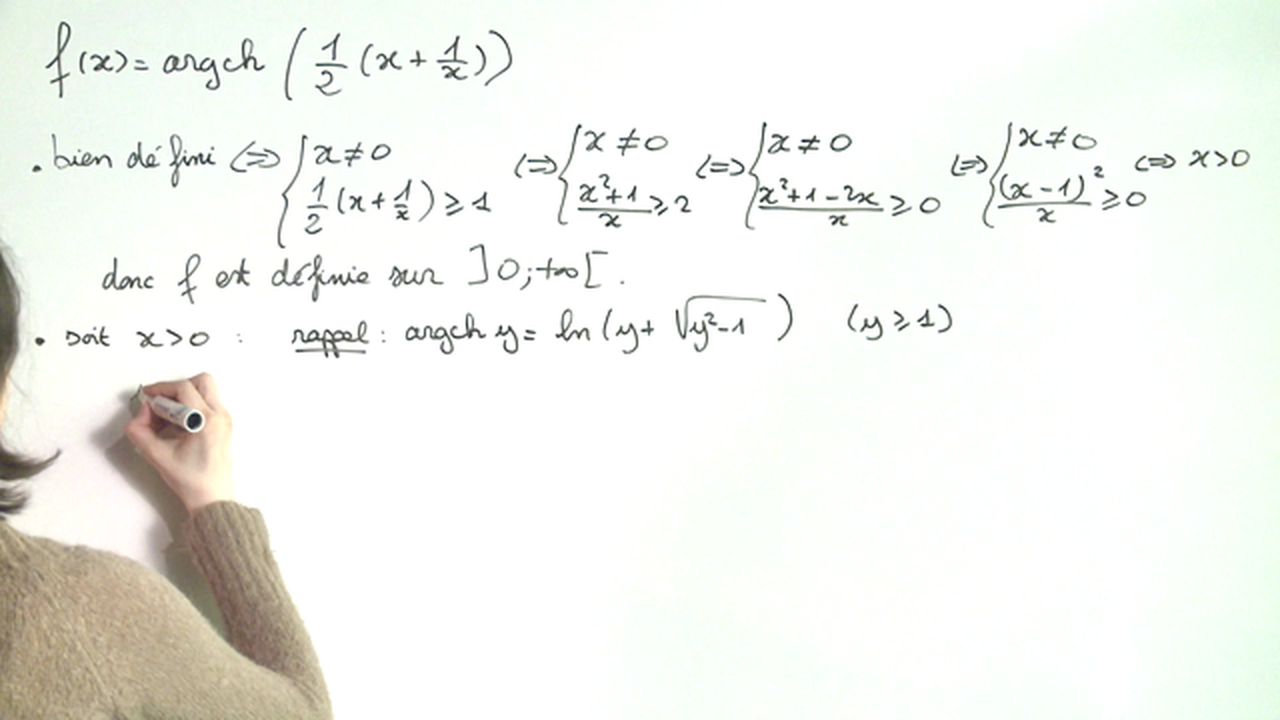 f(x)= argch (1/2 (x + 1/x))
. bien défini <=> { x ≠ 0 ; 1/2 (x + 1/x) ⩾ 1 <=> { x ≠ 0 ; (x²+1)/x ⩾ 2 <=> { x ≠ 0 ; (x²+1-2x)/x ⩾ 0 <=> { x ≠ 0 ; (x-1)²/x ⩾ 0 <=> x>0
donc f est définie sur ]0;+∞[.
. soit x>0 : rappel : argch y = ln (y + √(y²-1)) (y ⩾ 1)